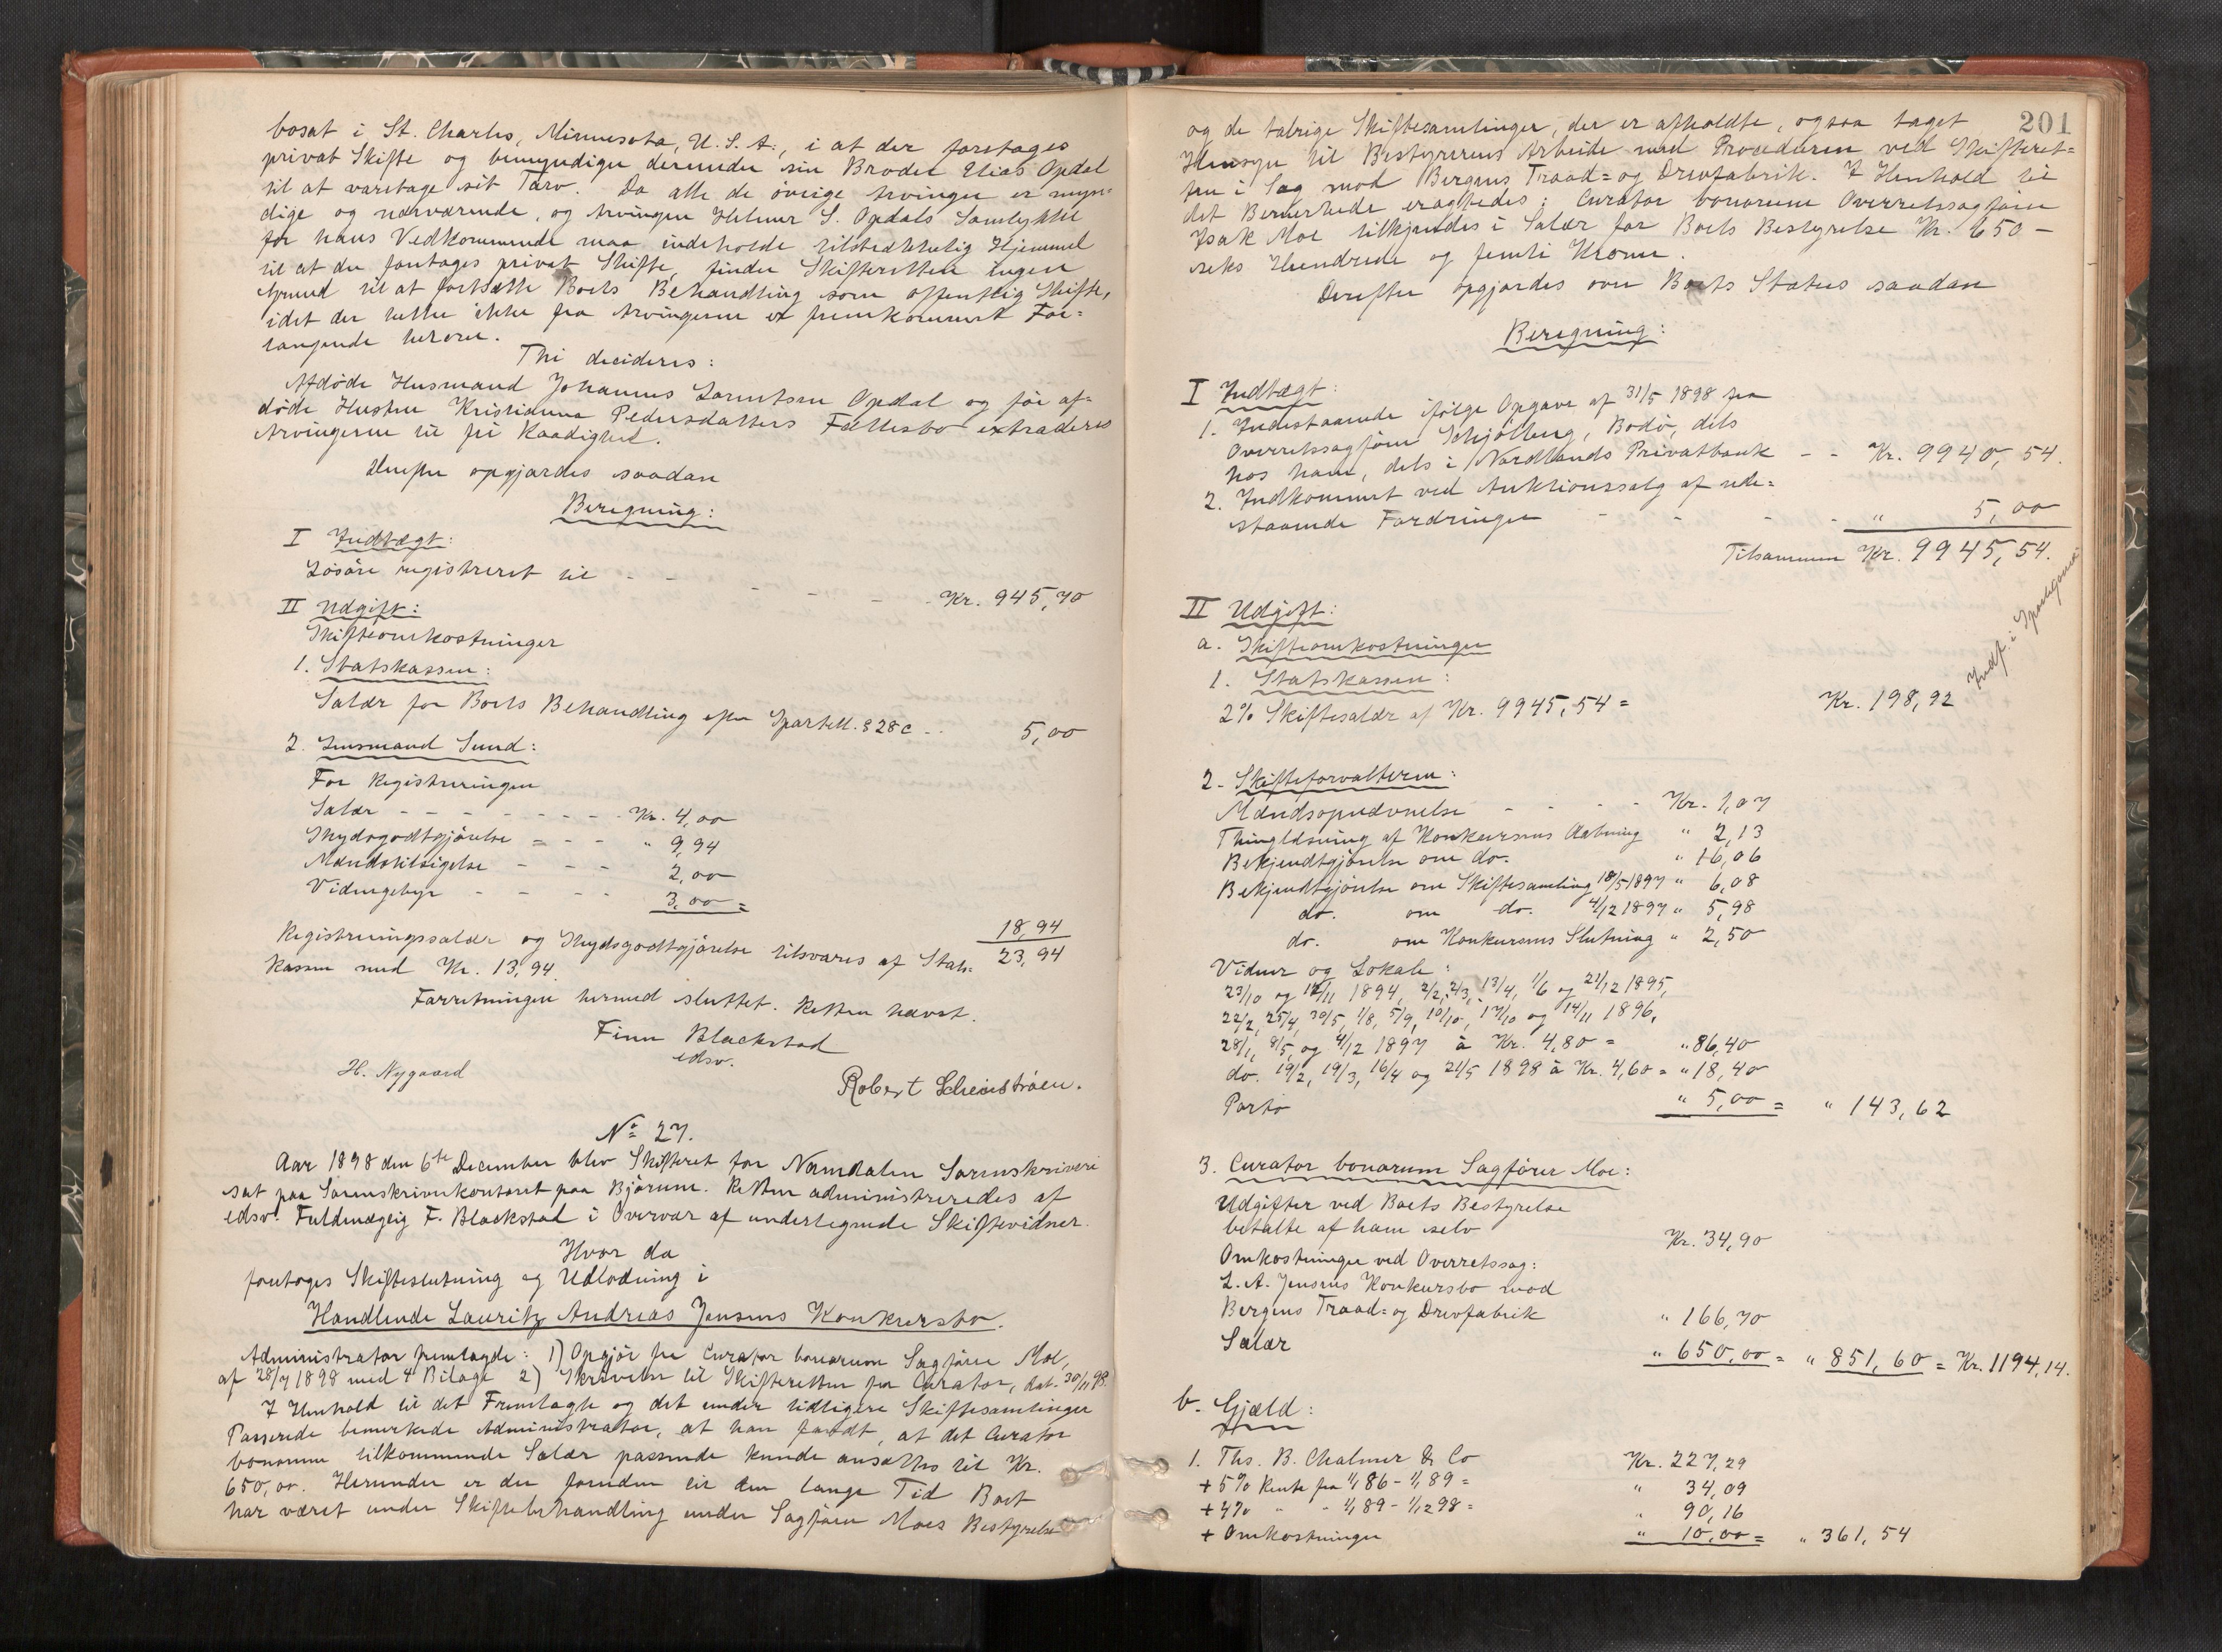 bosat i St. Charles, Minnesota, U. S. A., i at der foretages
privat Skifte og bemyndiger derunder sin Broder Elias Opdal
til at varetage sit Tarv. Da alle de övrige Arvinger er myn-
dige og nærværende, og Arvingen Helmer S. Opdals Samtykke
for hans Vedkommende maa indeholde tilstrækkelig Hjemmel
til at der foretages privat Skifte, finder Skifteretten ingen
Grund til at fortsætte Boets Behandling som offentlig Skifte,
idet der heller ikke fra Arvingerne er fremkommet For-
langende herom.
Thi decideres:
Afdöde Husmand Johannes Lorntsen Opdal og för af-
döde Hustru Kristianna Pedersdatters Fællesbo extraderes
Arvingerne til fri Raadighed.
Herefter opgjordes saadan
Beregning:
I Indtægt:
Lösöre registreret til - - - - - - Kr. 945,70
II Udgift:
Skifteomkostninger
1. Statskassen:
Salær for Boets Behandling efter Sportell. § 28 c - - 5,00
2. Lensmand Sund:
For Registreringen
Salær - - - - - - - Kr. 4,00
Skydsgodtgjörelse = - - " 9,94
Mændstilsigelse - - - 2,00
Vidnegebyr - - - - 3,00 =
18,94
Registreringssalær og Skydsgodtgjörelse tilsvares af Stats- 23,94
kassen med Kr. 13,94
Forretningen hermed sluttet. Retten hævet.
Finn Blackstad
edsv.
H. Nygaard
Robert Scheiströen.
No 27.
Aar 1898 den 6te December blev Skifteret for Namdalen Sorenskriveri
sat paa Sorenskriverkontoret paa Björum. Retten administreredes af
edsv. Fuldmægtig F. Blackstad i Overvær af undertegnede Skiftevidner.
Hvor da
foretoges Skifteslutning og Udlodning i
Handlende Lauritz Andreas Jensens Konkursbo.
Administrator fremlagde: 1) Opgjör fra Curator bonorum Sagförer Moe,
af 28/7 1898 med 4 Bilage 2) Skrivelse til Skifteretten fra Curator, dat. 30/11 98.
I Henhold til det Fremlagte og det under tidligere Skiftesamlinger
Passerede bemerkede Administrator, at han fandt, at det Curator
bonorum tilkommende Salær passende kunde ansættes til Kr.
650,00. Herunder er der foruden til den lange Tid Boet
har været under Skiftebehandling under Sagförer Moes Bestyrelse
201
og de talrige Skiftesamlinger, der er afholdte, ogsaa taget
Hensyn til Bestyrerens Arbeide med Proceduren ved Skifteret-
ten i Sag mod Bergens Traad- og Drevfabrik. I Henhold til
det Bemerkede eragtedes: Curator bonorum Overretssagförer
Isak Moe tilkjendes i Salær for Boets Bestyrelse Kr. 650 -
seks Hundrede og femti Kroner.
Derefter opgjordes over Boets Status saadan
Beregning:
I Indtægt:
1. Indestaaende ifölge Opgave af 31/5 1898 fra
Overretssagförer Schjölberg, Bodö, dels
hos ham, dels i Nordlands Privatbank - - Kr. 9940,54.
2. Indkommet ved Auktionssalg af ude-
staaende Fordringer - - - - " 5,00
Tilsammen Kr. 9945,54.
II Udgift:
a. Skifteomkostninger
1. Statskassen:
2% Skiftesalær af Kr. 9945,54 = Kr. 198,92
Indf. i
2. Skifteforvalteren:
Mændsopnævnelse - - - - Kr. 1,07
Thinglæsning af Konkursens Aabning " 2,13
Bekjendtgjörelse om do. " 16,06
Bekjendtgjörelse om Skiftesamling 18/5 1897 " 6,08
do. om do. 4/12 1897 " 5,98
do. om Konkursens Slutning " 2,50
Vidner og Lokale:
23/10 og 12/11 1894, 2/2, 2/3, 13/4, 1/6 og 21/12 1895,
22/2, 25/4, 30/5, 1/8, 5/9, 10/10, 17/10 og 14/11 1896,
28/1, 8/5, og 4/12 1897 à Kr. 4,80 = " 86,40
do. 19/2, 19/3, 16/4 og 21/5 1898 à Kr. 4,60 = " 18,40
Porto " 5,00 = " 143,62
3. Curator bonorum Sagförer Moe:
Udgifter ved Boets Bestyrelse
betalte af ham selv Kr. 34,90
Omkostninger ved Overretssag:
L. A. Jensens Konkursbo mod
Bergens Traad- og Drevfabrik " 166,70
Salær " 650,00 = " 851,60 = Kr. 1194,14.
b. Gjæld:
1. Ths. B. Chalmer & Co Kr. 227,29
+ 5% Rente fra 1/1 86 - 1/1 89 = " 34,09
+ 4% " " 1/1 89 - 1/12 98 = " 90,16
+ Omkostninger " 10,00 = " 361,54